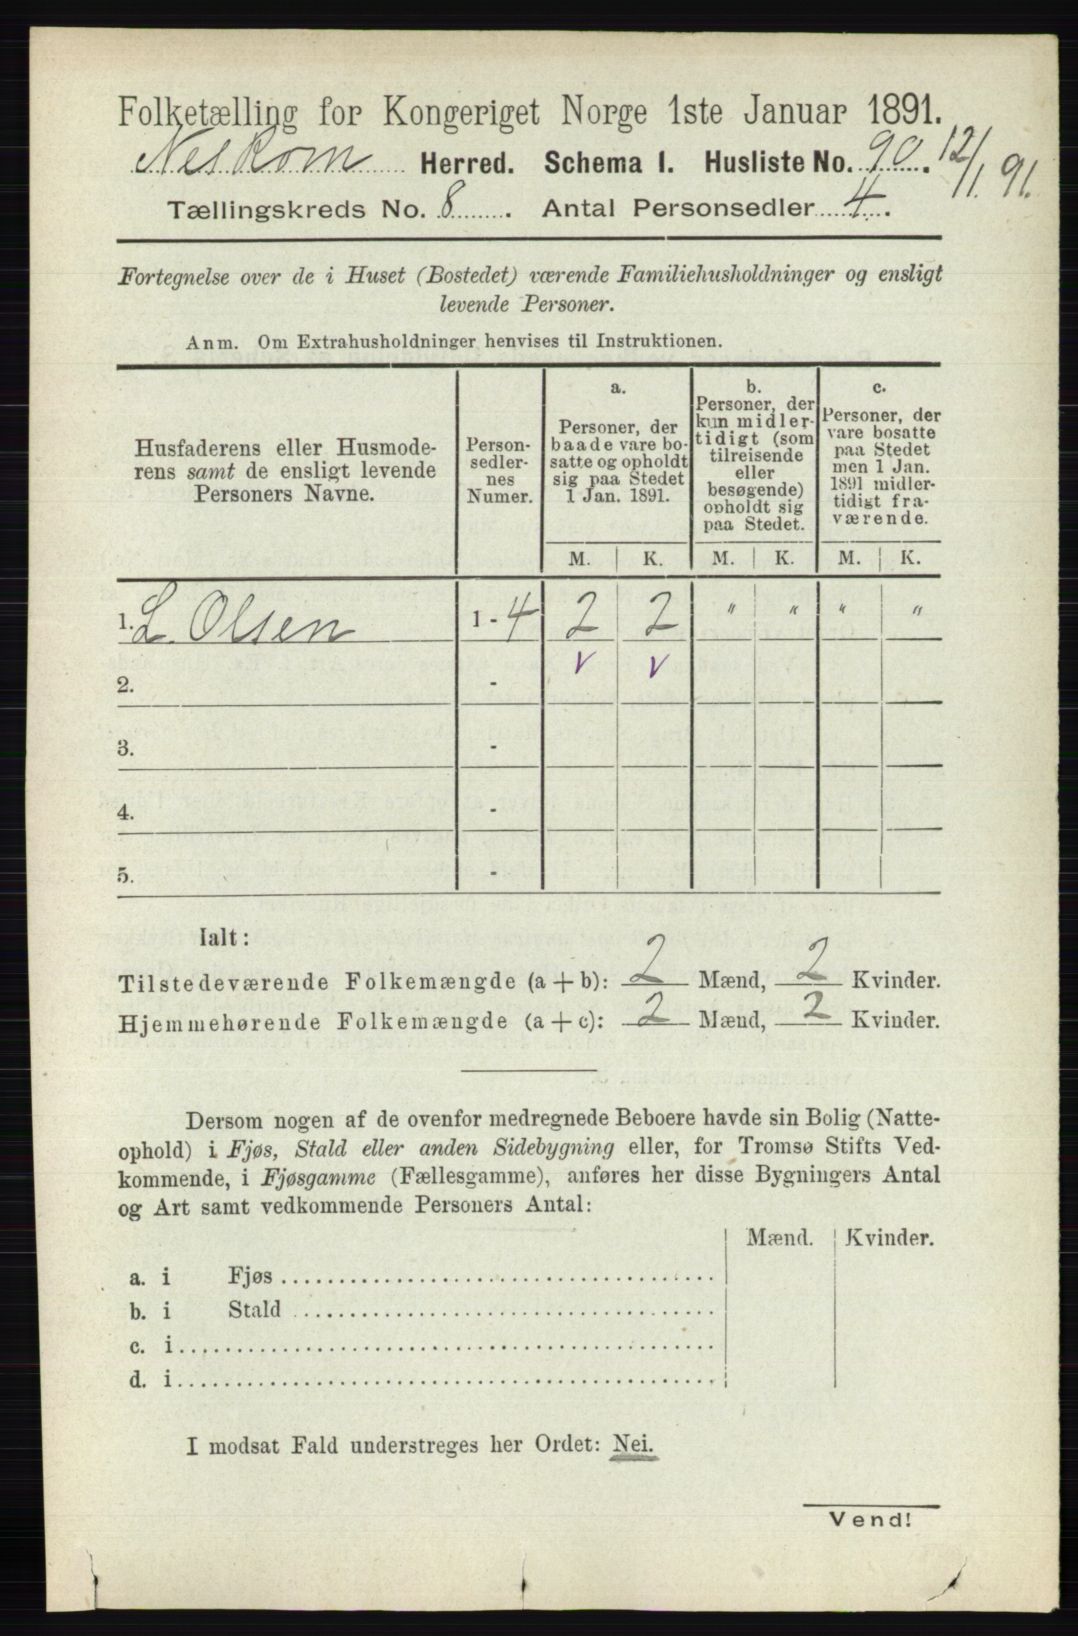 Folketælling for Kongeriget Norge 1ste Januar 1891.
Nes Kom Herred. Schema I. Husliste No. 90. 12/1 91.
Tællingskreds No. 8. Antal Personsedler 4.
Fortegnelse over de i Huset (Bostedet) værende Familiehusholdninger og ensligt
levende Personer.
Anm. Om Extrahusholdninger henvises til Instruktionen.
Husfaderens eller Husmode-
rens samt de ensligt levende
Personers Navne.
Person-
sedler-
nes
Numer.
a.
Personer, der
baade vare bo-
satte og opholdt
sig paa Stedet
1 Jan. 1891.
b.
Personer, der
kun midler-
tidigt (som
tilreisende
eller
besøgende)
opholdt sig
paa Stedet.
c.
Personer, der
vare bosatte
paa Stedet
men 1 Jan.
1891 midler-
tidigt fra-
værende.
M. K. M. K. M. K.
1. L Olsen 1 - 4 2 2 " " " "
v v
2. -
3. -
4. -
5. -
Ialt:
Tilstedeværende Folkemængde (a + b): 2 Mænd, 2 Kvinder.
Hjemmehørende Folkemængde (a + c): 2 Mænd, 2 Kvinder.
Dersom nogen af de ovenfor medregnede Beboere havde sin Bolig (Natte-
ophold) i Fjøs, Stald eller anden Sidebygning eller, for Tromsø Stifts Ved-
kommende, i Fjøsgamme (Fællesgamme), anføres her disse Bygningers Antal
og Art samt vedkommende Personers Antal:
Mænd. Kvinder.
a. i Fjøs
b. i Stald
c. i
d. i
I modsat Fald understreges her Ordet: Nei.
Vend!